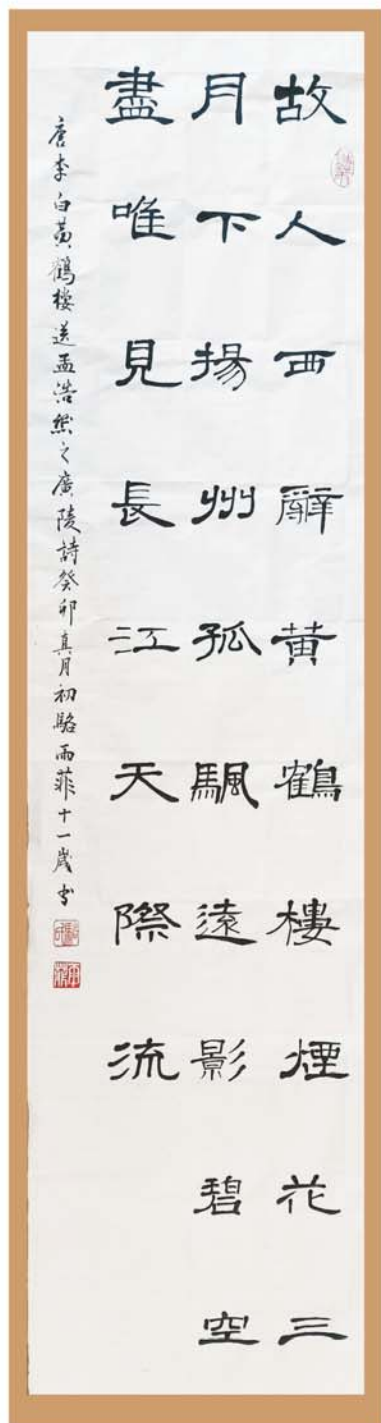 故人西辭黄鶴樓煙花三
月下揚州孤颿遠影碧空
盡唯見長江天際流
唐李白黄鶴樓送孟浩然之廣陵詩癸卯真月初駱雨菲十一歲书